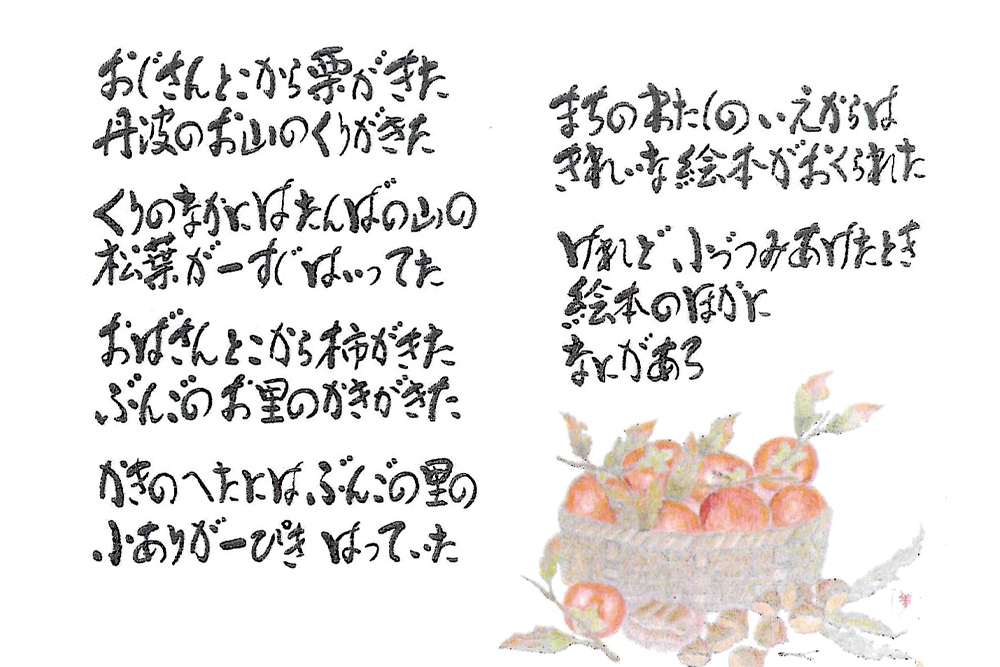 おじさんとこから栗がきた
丹波のお山のくりがきた
くりのなかにはたんばの山の
松葉が一すじはいってた
おばさんとこから柿がきた
ぶんごのお里のかきがきた
かきのへたにはぶんごの里の
小ありが一ぴきはっていた
まちのわたしのいえからは
きれいな絵本がおくられた
けれど小づつみあけたとき
絵本のほかに
なにがあろ